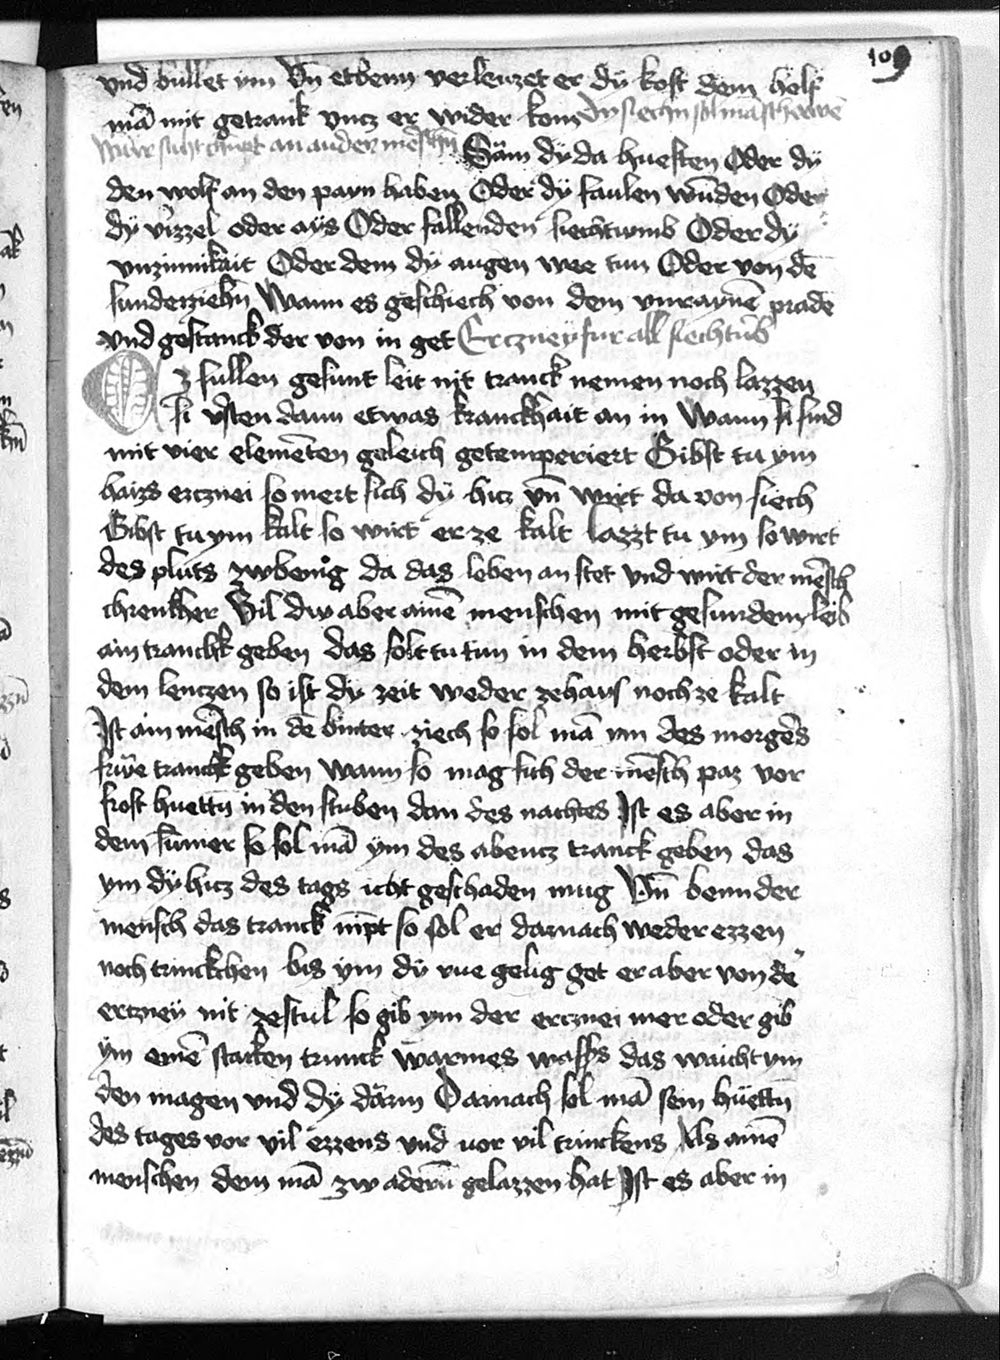 109
vnd bullet ym Vn̄ etbenn verleuzet er dÿ kost dem helf
mā mit getrank vncz er wider kom Dy siechn sol mā schewe
Säm dÿ da huesten Oder dÿ
den wolf an den payn haben Oder dÿ faulen wūden Oder
dÿ vizzel oder ays Oder fallenden siechtumb Oder dÿ
vnzinnikait Oder dem dÿ augen wee tun Oder von dē
sunderziehn̄ Wann es geschiech von dem vnraynē pradē
vnd gestanck der von in get Erczney fur all siechtūb
Ez sullen gesunt leit nit tranck nemen noch lazzen
si vesten dann etwas kranckhait an in Wann si sind
mit vier elemēten geleich getemperiert Gibst tu ym
haizs ercznei so mert sich dÿ hicz vn̄ wirt da von siech
Gibst tu ym kalt so wirt er ze kalt lazzt tu ym so wirt
des pluts zwbenig da das leben an stet vnd wirt der mēsch
chrenkher Vil dw aber ainē menschen mit gesundem leib
ain tranckh geben das solt tu tun in dem herbst oder in
dem lenczen so ist dÿ zeit weder zehays noch ze kalt
Ist ain mēsch in dē binter ziech so sol mā ym des morgēs
frwe tranck geben wann so mag sich der mēsch paz vor
frost huettn̄ in den stuben dan des nachtes Ist es aber in
dem sūmer so sol mā ym des abencz tranck geben das
ym dÿ hicz des tags icht geschaden mug Vn̄ benn der
mensch das tranck nīpt so sol er darnach weder ezzen
noch trinckchen bis ym dÿ rue gelig get er aber von dē
ercznei nit ze stul so gib ym der ercznei mer oder gib
ym einē starken trunck warmes wassers das waicht ym
den magen vnd dÿ därm Darnach sol mā sein hüettn̄
des tages vor vil ezzens vnd vor vil trinckens Als ainē
menschen dem mā zw adern̄ gelazzen hat Ist es aber in